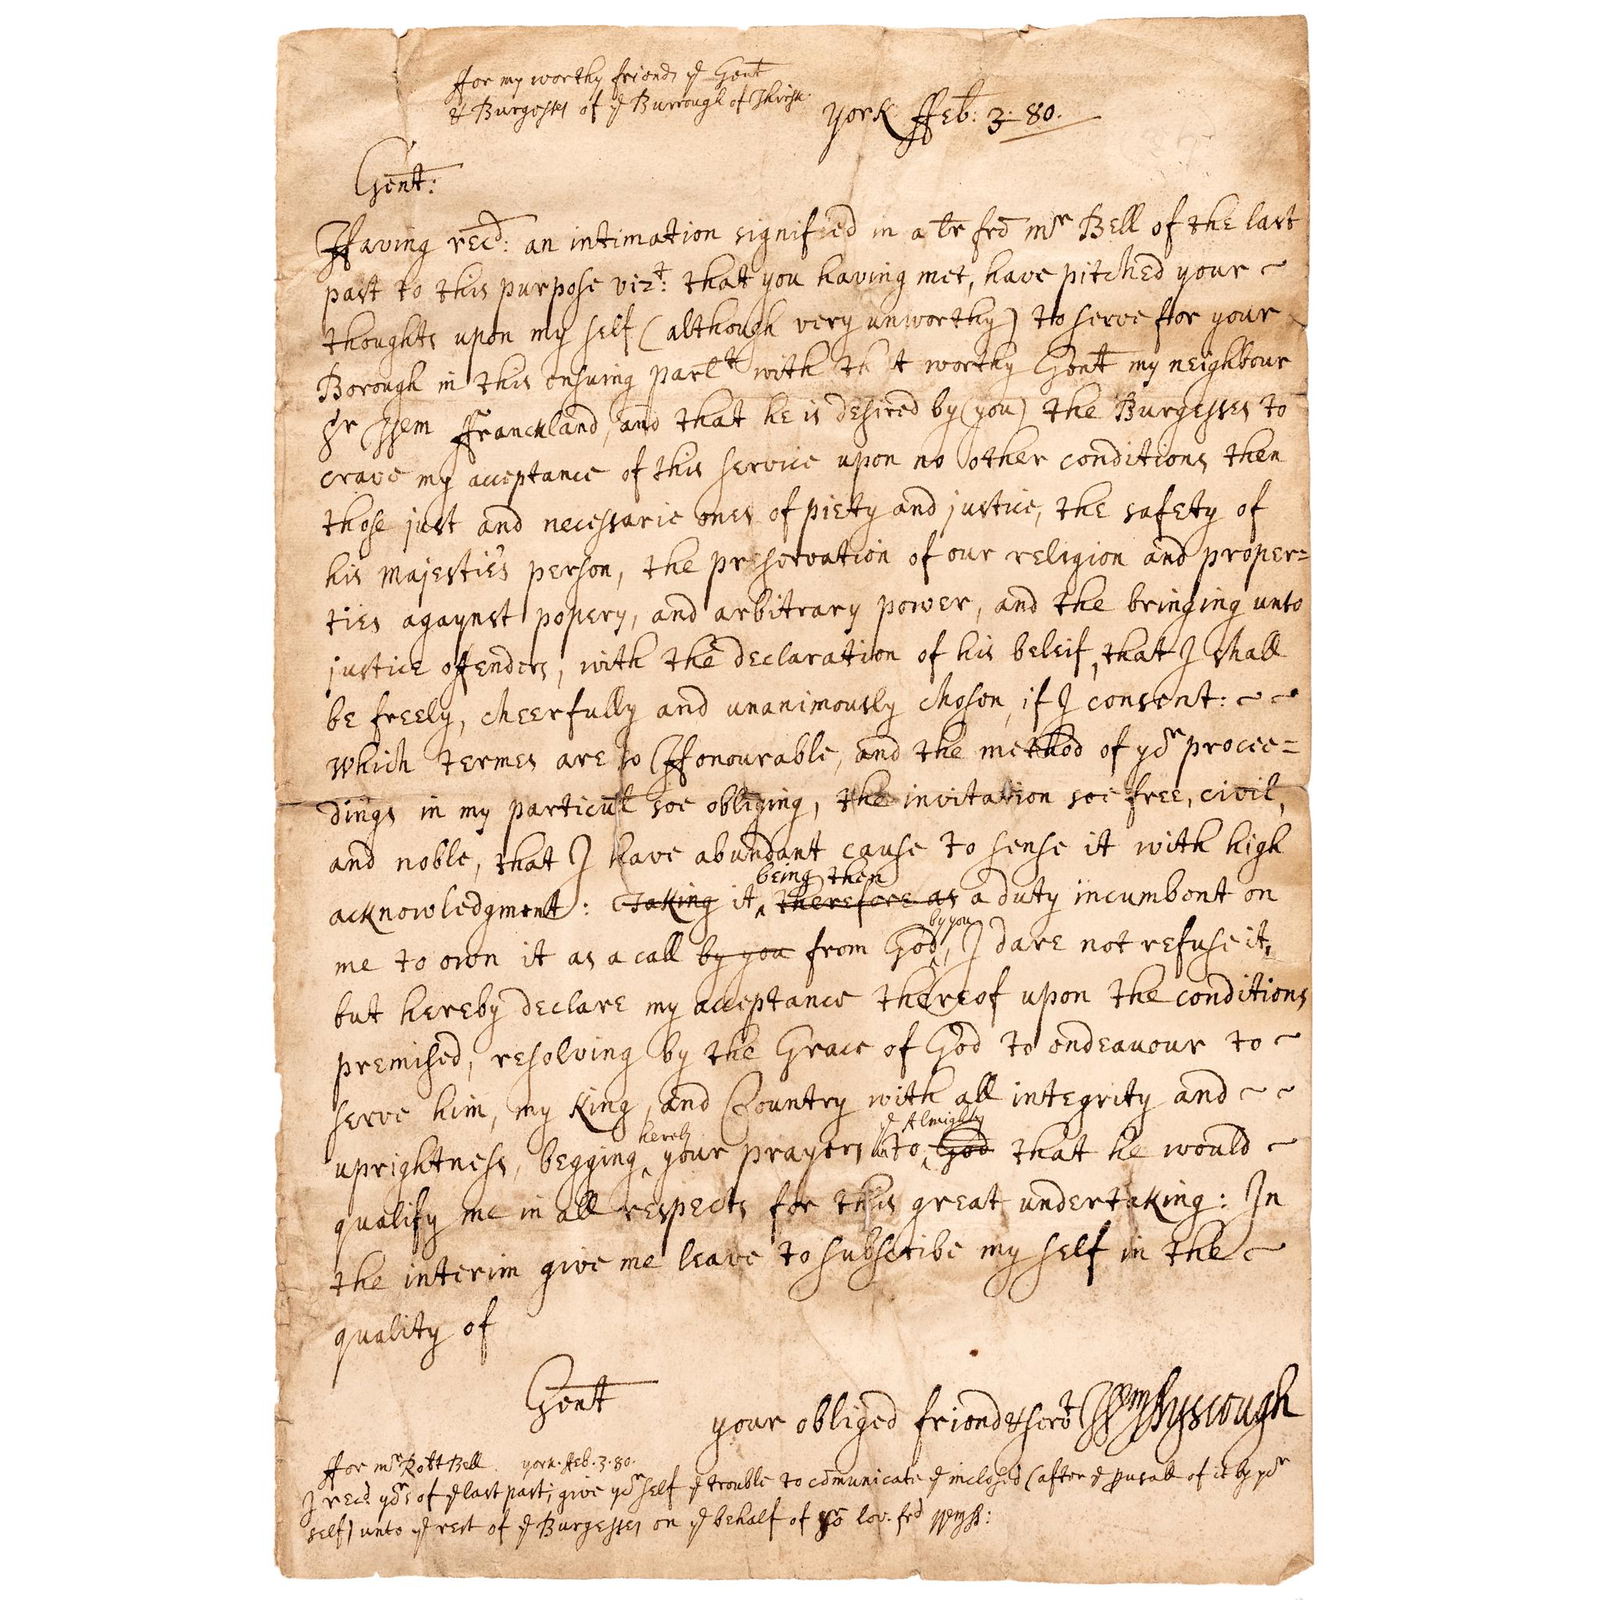 ffor my worthy friends ye Gent
& Burgesses of ye Burrough of Thriske
York ffeb: 3: 80.
Gent:
Having recd: an intimation signified in a ltr frd mr Bell of the last
past to this purpose vizt: that you having met, have pitched your
thoughts upon my self (although very unworthy) to serve ffor your
Borough in this ensuing parlt with tht worthy Gentt my neighbour
Sr Wem ffranckland, and that he is desired by (you) the Burgesses to
crave my acceptance of this service upon no other conditions then
those just and necessarie ones of piety and justice, the safety of
his majestie's person, the preservation of our religion and proper=
ties agaynst popery, and arbitrary power, and the bringing unto
justice offenders, with the declaration of his beleif, that I shall
be freely, cheerfully and unanimously chosen, if I consent:
which termes are so Honourable, and the method of yor procee=
dings in my particul soe obliging, the invitation soe free, civil,
and noble, that I have abundant cause to sense it with high
being then
acknowledgment: Taking it therefore as a duty incumbent on
by you
me to own it as a call by you from God, I dare not refuse it,
but hereby declare my acceptance thereof upon the conditions
premised, resolving by the Grace of God to endeavour to
serve him, my King, and Country with all integrity and
herely ye Almighty
uprightness, begging your prayers to God that he would
qualify me in all respects for this great undertaking: In
the interim give me leave to subscribe my self in the
quality of
Gentt
your obliged friend & servt Wm Ayscough
ffor mr Robtt Bell york. ffeb. 3. 80.
I recd yors of ye last past; give yor self ye trouble to comunicate ye inclosed (after ye perusall of it by yor
self) unto ye rest of ye Burgesses on ye behalf of yor lov. frd